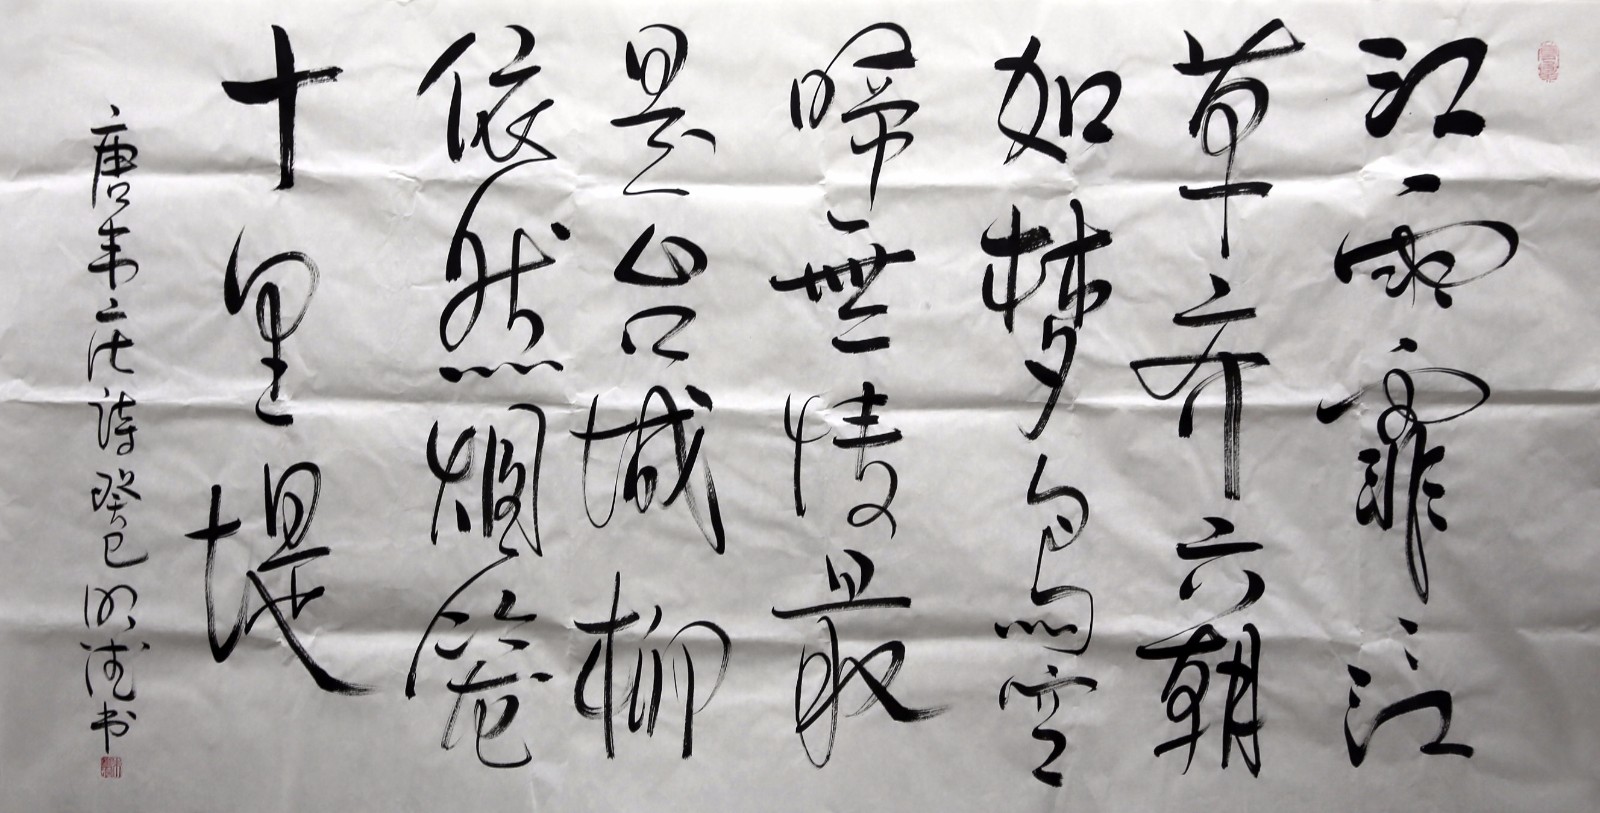 江雨霏々江
草齐六朝
如梦鸟空
啼無情最
是台城柳
依然烟笼
十里堤
唐韦庄诗癸巳明书